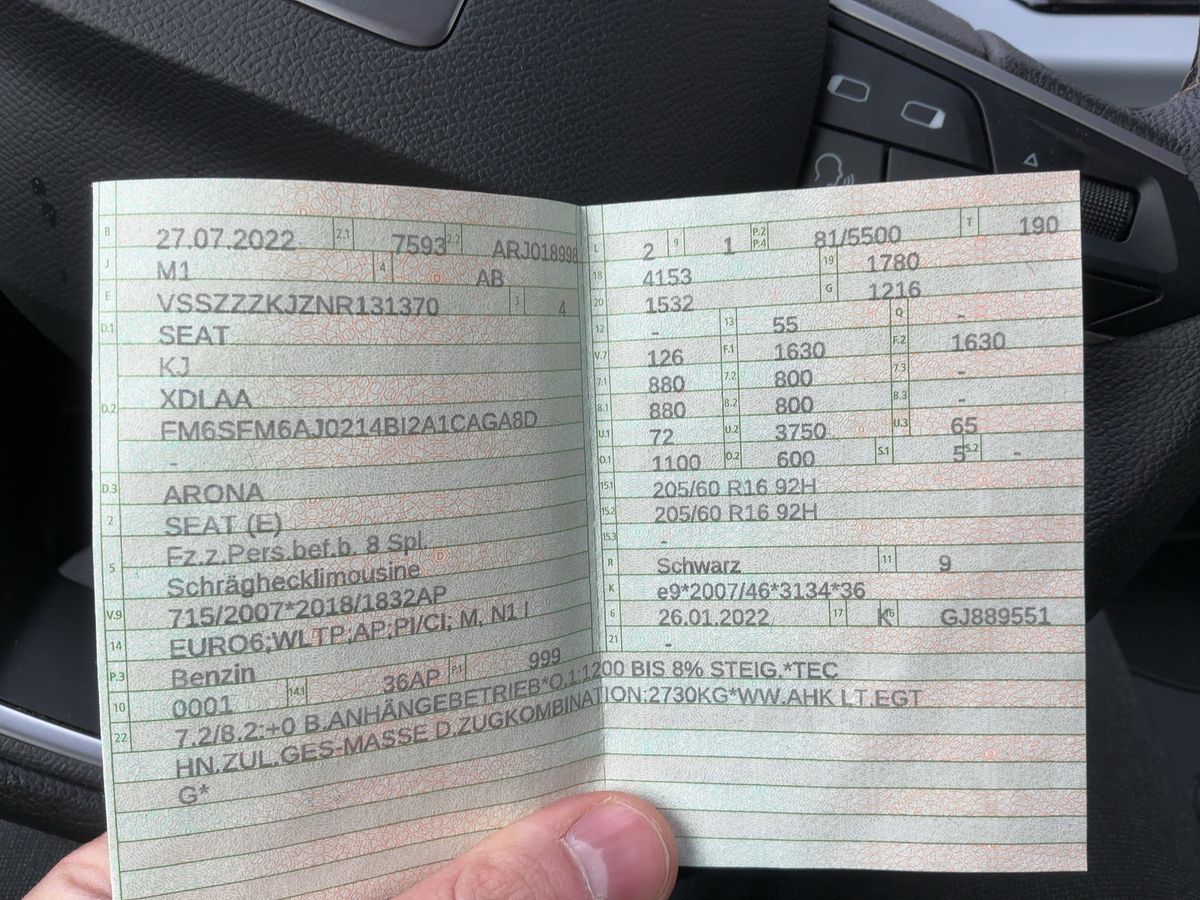 B 27.07.2022 2.1 7593 2.2 ARJ018998
J M1 4 AB
E VSSZZZKJZNR131370 3 4
D.1 SEAT
KJ
D.2 XDLAA
FM6SFM6AJ0214BI2A1CAGA8D
-
D.3 ARONA
2 SEAT (E)
5 Fz.z.Pers.bef.b. 8 Spl.
Schräghecklimousine
V.9 715/2007*2018/1832AP
14 EURO6;WLTP;AP;PI/CI; M, N1 I
P.3 Benzin
10 0001 14.1 36AP P.1 999
L 2 9 1 P.2 P.4 81/5500 T 190
18 4153 19 1780
20 1532 G 1216
12 - 13 55 Q -
V.7 126 F.1 1630 F.2 1630
7.1 880 7.2 800 7.3 -
8.1 880 8.2 800 8.3 -
U.1 72 U.2 3750 U.3 65
O.1 1100 O.2 600 S.1 5 S.2 -
15.1 205/60 R16 92H
15.2 205/60 R16 92H
15.3 -
R Schwarz 11 9
K e9*2007/46*3134*36
6 26.01.2022 17 K 16 GJ889551
21 -
22 7.2/8.2:+0 B.ANHÄNGEBETRIEB*O.1:1200 BIS 8% STEIG.*TEC
HN.ZUL.GES-MASSE D.ZUGKOMBINATION:2730KG*WW.AHK LT.EGT
G*